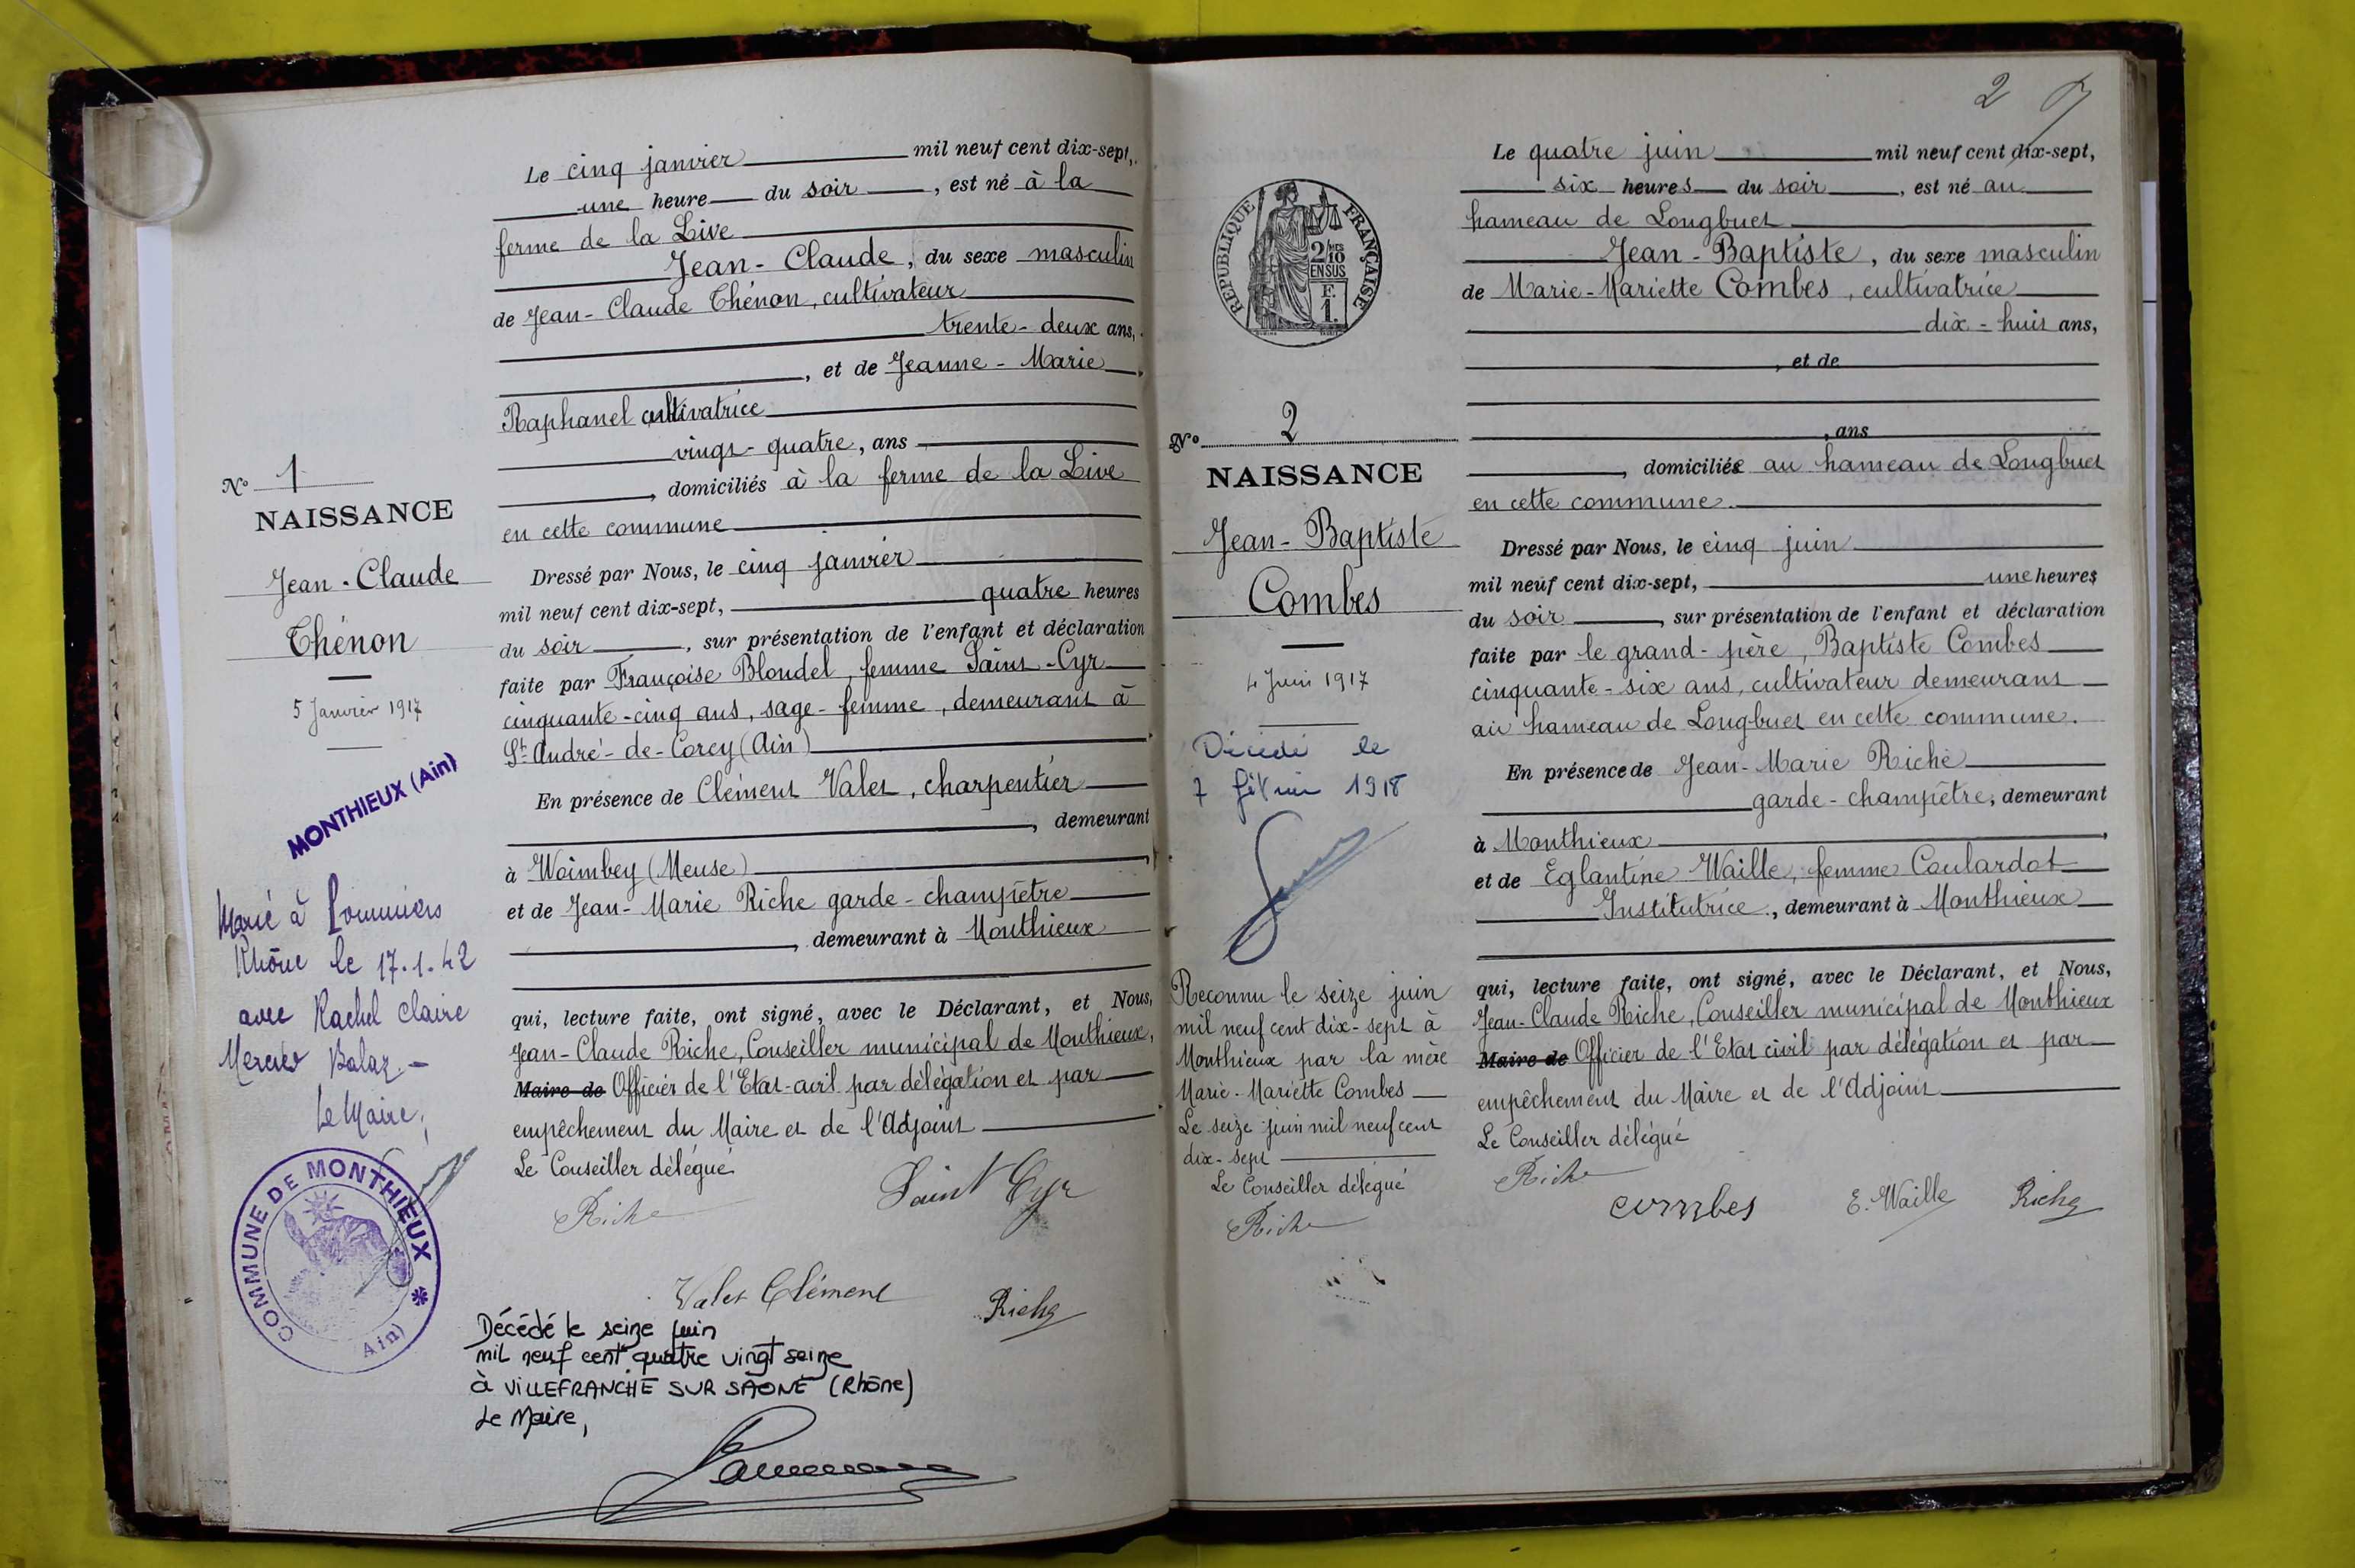 Le cinq janvier mil neuf cent dix-sept,
une heure du soir, est né à la
ferme de la Live
Jean-Claude, du sexe masculin
de Jean-Claude Thénon, cultivateur
trente-deux ans,
, et de Jeanne-Marie
Raphanel cultivatrice
vingt-quatre, ans
, domiciliés à la ferme de la Live
en cette commune
Dressé par Nous, le cinq janvier
mil neuf cent dix-sept, quatre heures
du soir, sur présentation de l'enfant et déclaration
faite par Françoise Blondel, femme Saint-Cyr
cinquante-cinq ans, sage-femme, demeurant à
St André-de-Corcy (Ain)
En présence de Clément Valet, charpentier
, demeurant
à Woimbey (Meuse)
et de Jean-Marie Riche garde-champêtre
, demeurant à Monthieux
qui, lecture faite, ont signé, avec le Déclarant, et Nous,
Jean-Claude Riche, Conseiller municipal de Monthieux,
Maire de Officier de l'Etat-civil par délégation et par
empêchement du Maire et de l'Adjoint
Le Conseiller délégué
Riche
Saint Cyr
Valet Clément
Riche
Décédé le seize juin
mil neuf cent quatre vingt seize
à VILLEFRANCHE SUR SAÔNE (Rhône)
Le Maire,
No 1
NAISSANCE
Jean-Claude
Thénon
5 Janvier 1917
MONTHIEUX (Ain)
Marié à Pommiers
Rhône le 17.1.42
avec Rachel Claire
Mercier
Le Maire,
COMMUNE DE MONTHIEUX
Ain)
2
RÉPUBLIQUE FRANÇAISE
2/10 MES
EN SUS
F.
1.
No 2
NAISSANCE
Jean-Baptiste
Combes
4 Juin 1917
Décédé le
7 février 1918
Reconnu le seize juin
mil neuf cent dix-sept à
Monthieux par la mère
Marie-Mariette Combes
Le seize juin mil neuf cent
dix-sept
Le Conseiller délégué
Riche
Le quatre juin mil neuf cent dix-sept,
six heures du soir, est né au
hameau de Longbuet
Jean-Baptiste, du sexe masculin
de Marie-Mariette Combes, cultivatrice
dix-huit ans,
, et de
, ans
, domiciliée au hameau de Longbuet
en cette commune.
Dressé par Nous, le cinq juin
mil neuf cent dix-sept, une heures
du soir, sur présentation de l'enfant et déclaration
faite par le grand-père, Baptiste Combes
cinquante-six ans, cultivateur demeurant
au hameau de Longbuet en cette commune.
En présence de Jean-Marie Riche
garde-champêtre, demeurant
à Monthieux
et de Eglantine Waille, femme Coulardot
Institutrice, demeurant à Monthieux
qui, lecture faite, ont signé, avec le Déclarant, et Nous,
Jean-Claude Riche, Conseiller municipal de Monthieux
Maire de Officier de l'Etat civil par délégation et par
empêchement du Maire et de l'Adjoint
Le Conseiller délégué
Riche
combes
E. Waille
Riche